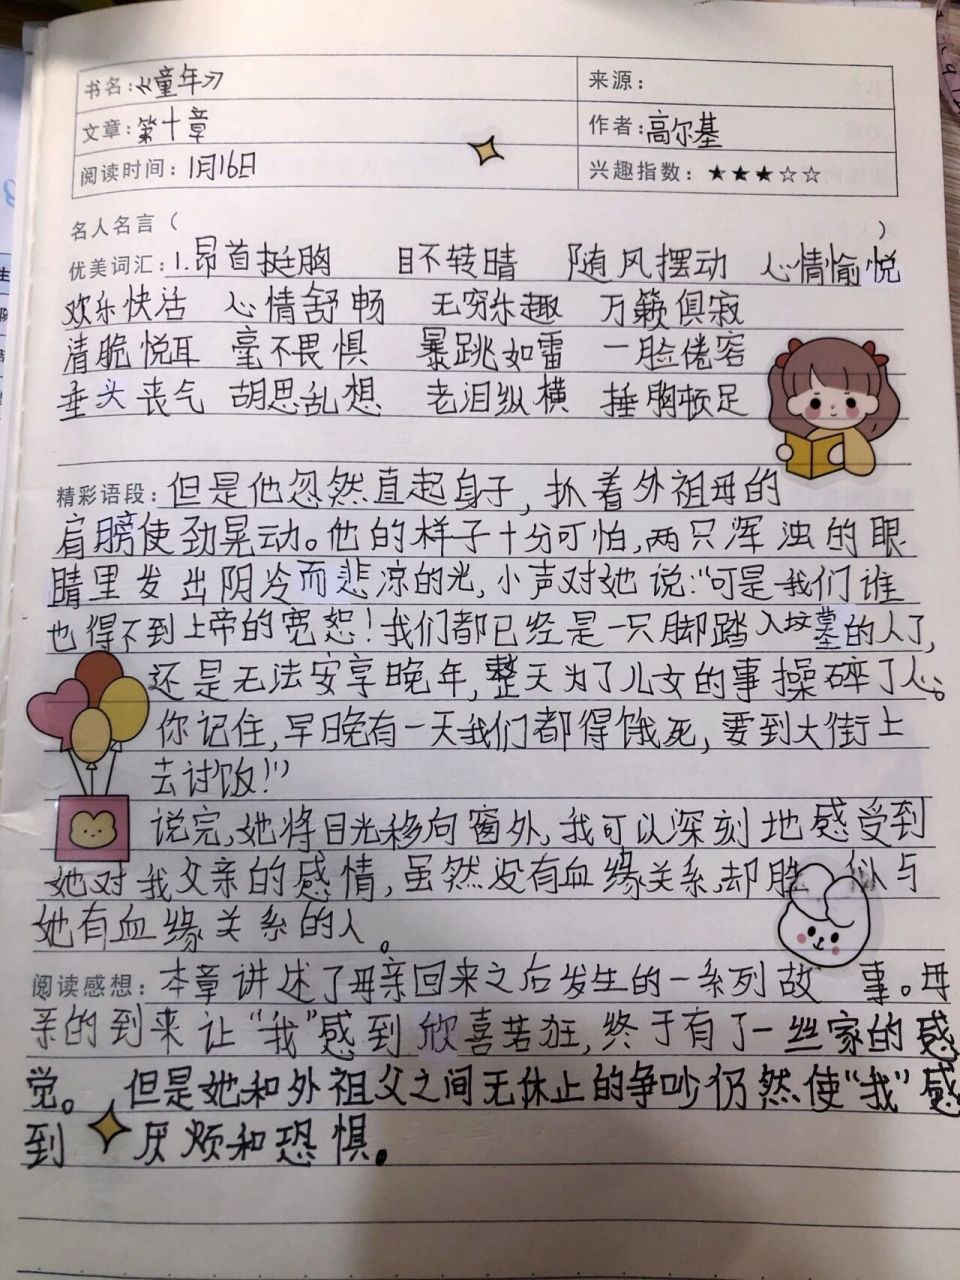 书名:《童年》
来源:
文章:第十章
作者:高尔基
阅读时间:1月16日
兴趣指数:★★★☆☆
名人名言( )
优美词汇:1.昂首挺胸 目不转睛 随风摆动 心情愉悦
欢乐快活 心情舒畅 无穷乐趣 万籁俱寂
清脆悦耳 毫不畏惧 暴跳如雷 一脸倦容
垂头丧气 胡思乱想 老泪纵横 捶胸顿足
精彩语段:但是他忽然直起身子,扒着外祖母的
肩膀使劲晃动。他的样子十分可怕,两只浑浊的眼
睛里发出阴冷而悲凉的光,小声对她说:“可是我们谁
也得不到上帝的宽恕!我们都已经是一只脚踏入坟墓的人了,
还是无法安享晚年,整天为了儿女的事操碎了心。
你记住,早晚有一天我们都得饿死,要到大街上
去讨饭!”
说完,她将目光移向窗外,我可以深刻地感受到
她对我父亲的感情,虽然没有血缘关系,却胜似与
她有血缘关系的人。
阅读感想:本章讲述了母亲回来之后发生的一系列故事。母
亲的到来让“我”感到欣喜若狂,终于有了一丝家的感
觉。但是她和外祖父之间无休止的争吵仍然使“我”感
到厌烦和恐惧。